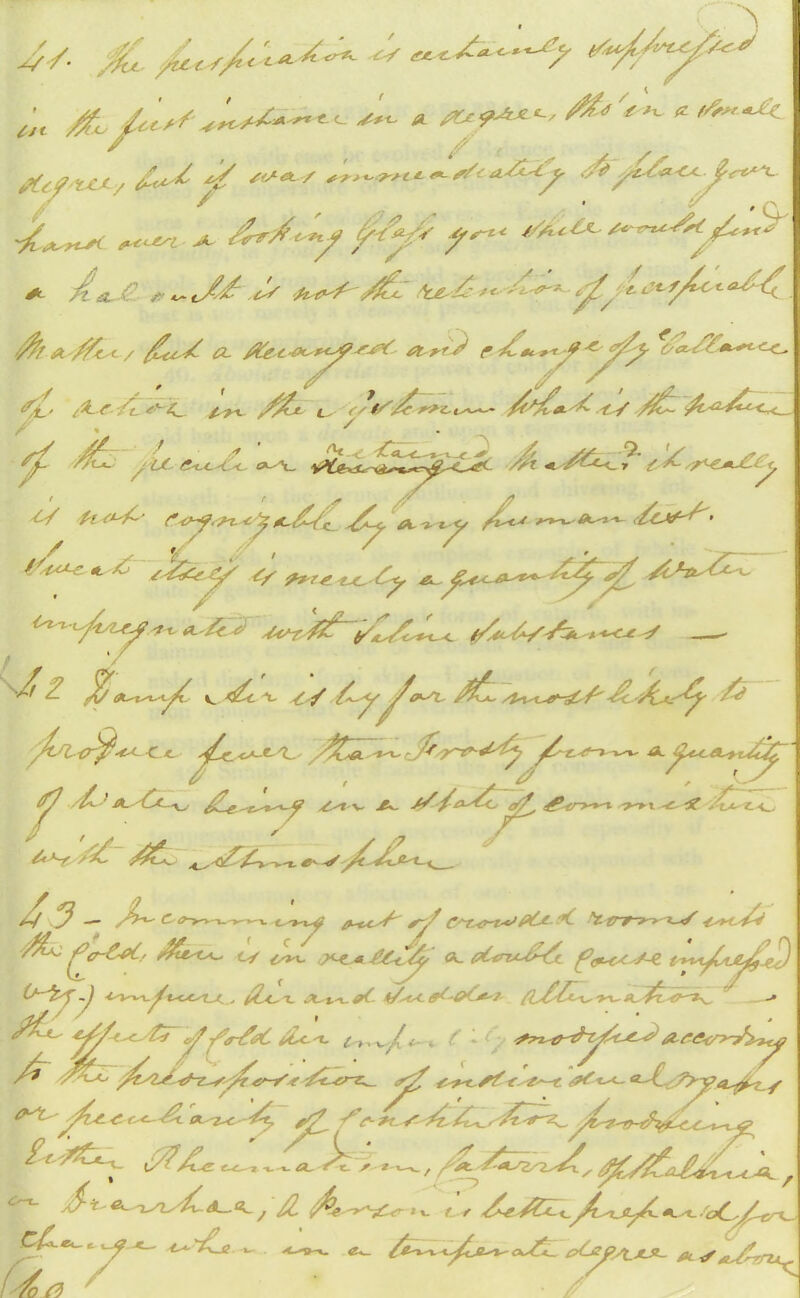 41. The perspiration is certainly suppressed
in the first instance in a degree, tho' in a small
degree, but if was immeadiately to place your
hand over a looking Glass you still would find
a hal it is not the retention of perspirable
Matter, but a deranged and change of y^e ballance
of Action in the System What is the nature
of the peculiar retained deranged Matter? it really
is not cognizable by any human test.
Sweat itself is merely a quantity of Water
impregnated with Saline Substances —
42 Damp Air is by far the most likely to
produce fever than Frosty from a quantity
of Water being in a State of commixture
with the Atmosphere
43 – In comming out of crowded rooms into
the Cold, there is in reallity a double Cause impressed
(viz.) impure Air and Sudden Alternation —
the effects of Cold Air modified according
to the predisposition of individual Organs
or peculiarity of Constitution producing
Either Rheumatism, Catarrh, Opthalmia,
or Diarrhaea, A Person is better prepar'd for
Change when in a temperate degree as above
60